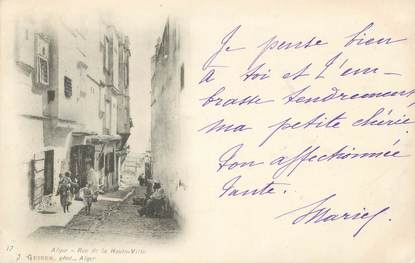 Je pense bien
à toi et t'em-
brasse tendrement
ma petite chérie
Ton affectionnée
tante.
Marie
Alger - Rue de la Haute-Ville
J. GEISER, phot., Alger